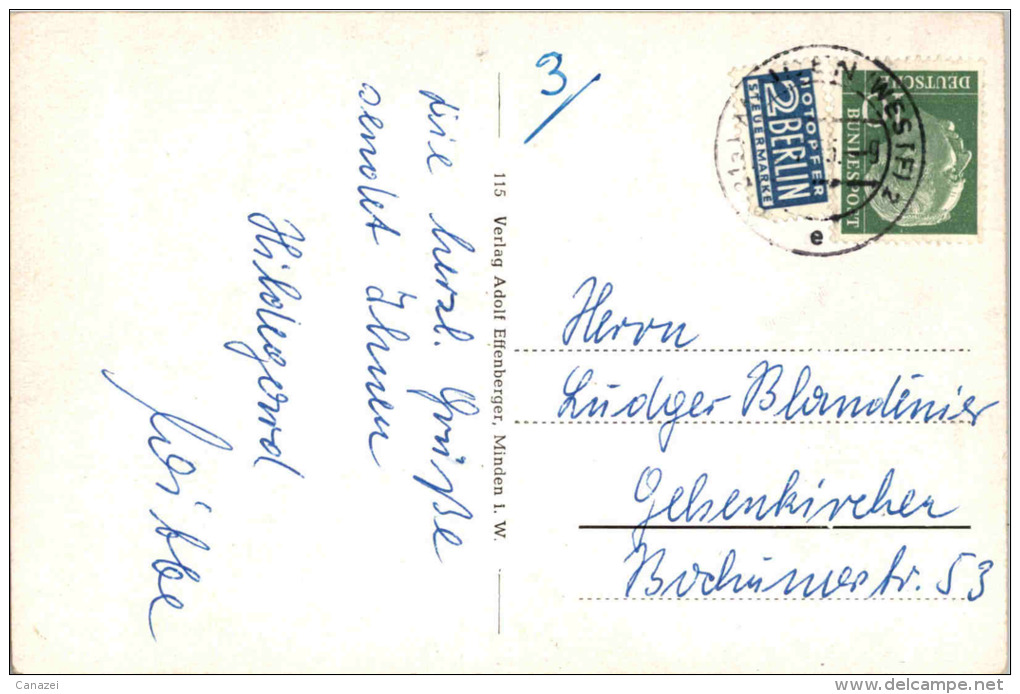 die herzl. Grüße
sendet Ihnen
Hildegard
3/
115 Verlag Adolf Effenberger, Minden i. W.
NOTOPFER
2 BERLIN
STEUERMARKE
DEUTSCHE
BUNDESPOST
(WESTF) 2
e
Herrn
Ludger Blandinier
Gelsenkirchen
Bochumerstr. 53
Canazei
www.delcampe.net